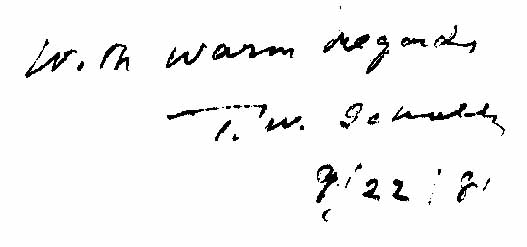 With warm regards,
T. W. Schultz
9/22/81